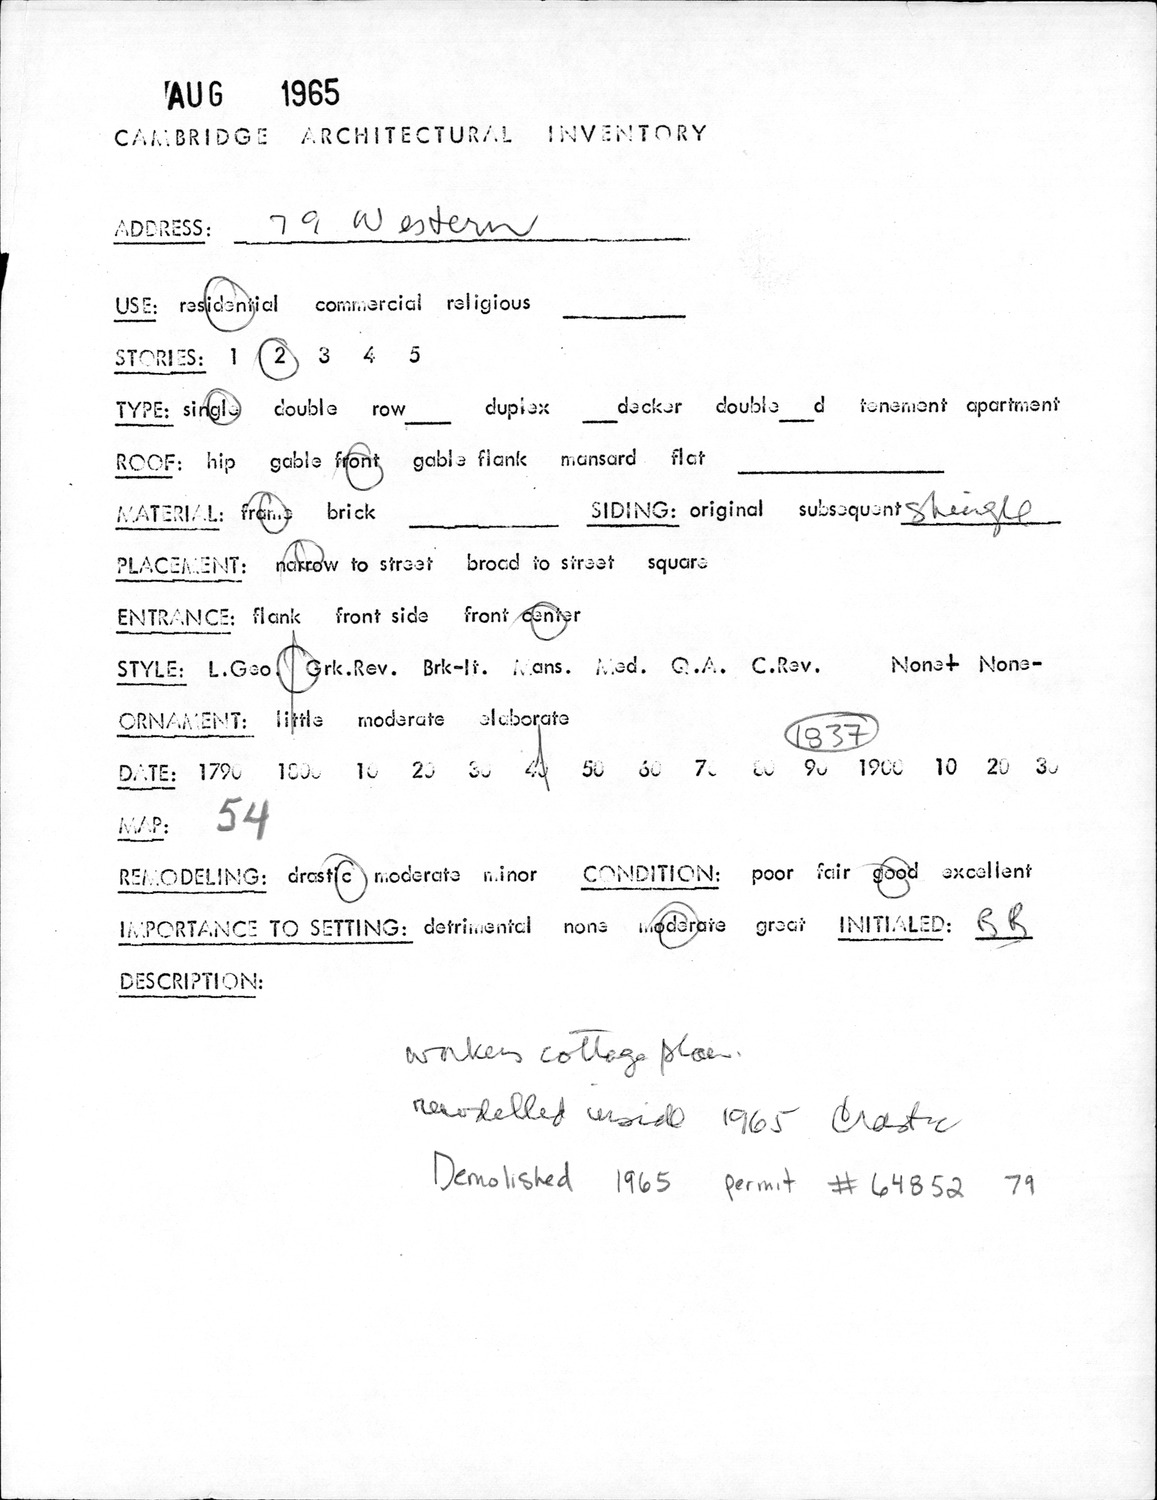 AUG 1965
CAMBRIDGE ARCHITECTURAL INVENTORY
ADDRESS: 79 Western
USE: residential commercial religious
STORIES: 1 2 3 4 5
TYPE: single double row duplex decker double d tenement apartment
ROOF: hip gable front gable flank mansard flat
MATERIAL: frame brick SIDING: original subsequent Shingle
PLACEMENT: narrow to street broad to street square
ENTRANCE: flank front side front center
STYLE: L.Geo. Grk.Rev. Brk-It. Mans. Med. Q.A. C.Rev. None+ None-
ORNAMENT: little moderate elaborate
1837
DATE: 1790 1800 10 20 30 40 50 60 70 80 90 1900 10 20 30
MAP: 54
REMODELING: drastic moderate minor CONDITION: poor fair good excellent
IMPORTANCE TO SETTING: detrimental none moderate great INITIALED: BR
DESCRIPTION:
workers cottage plan.
remodelled inside 1965 drastic
Demolished 1965 permit # 64852 79